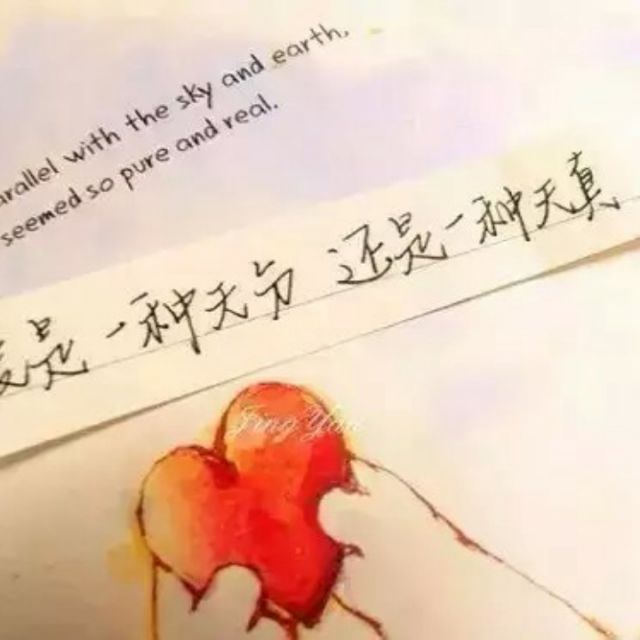 parallel with the sky and earth.
seemed so pure and real.
爱是一种天分 还是一种天真
Jing Yuan